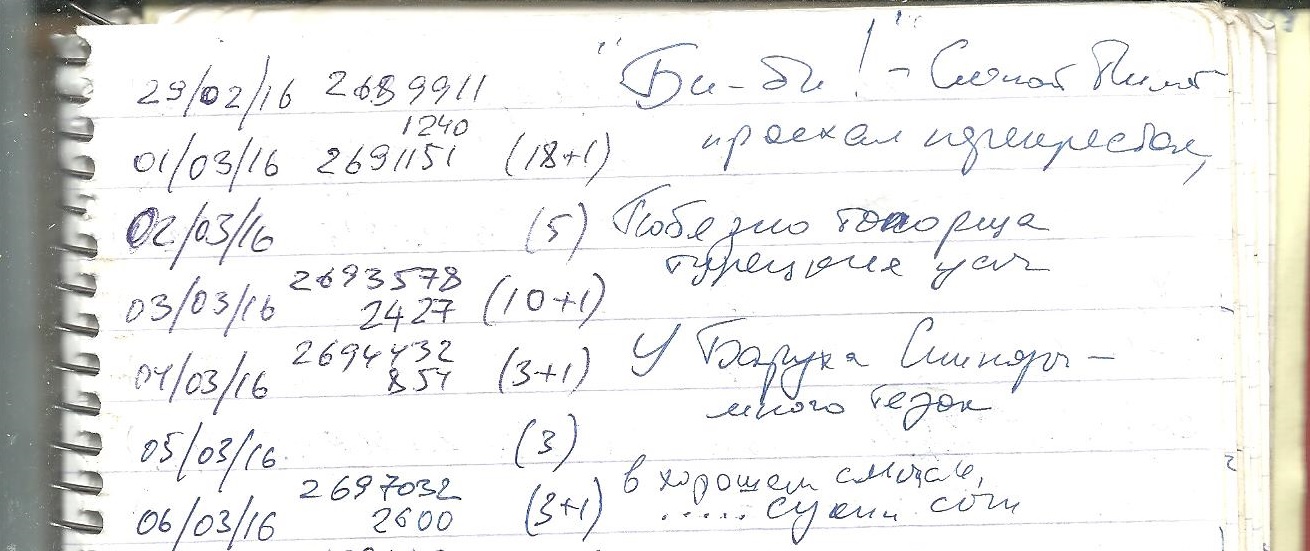 29/02/16 2689911 "Би-би!" - Слепой Пилот
1240
проехал перекресток,
01/03/16 2691151 (18+1)
02/03/16 (5) Победно топорща
турецкие усы
2693578
03/03/16 2427 (10+1)
2694432
04/03/16 854 (3+1) У Баруха Спинозы -
много тезок
05/03/16 (3)
в хорошем смысле,
2697032
06/03/16 2600 (3+1) ..... сукин сын